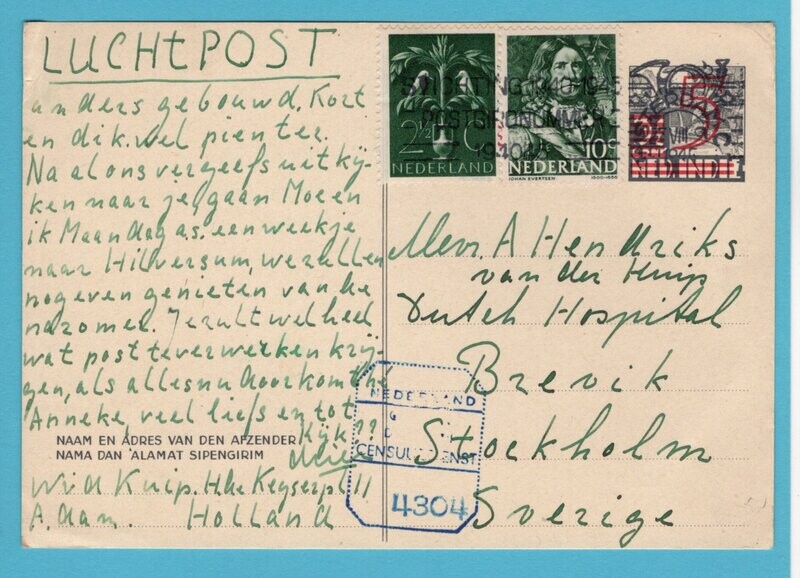 LUCHTPOST
anders gebouwd. Kort
en dik. wel pienter.
Na al ons vergeefs uitkij-
ken naar je, gaan Moe en
ik Maandag as. een weekje
naar Hilversum, we zullen
nog even genieten van de
nazomer. Je zult wel heel
wat post te verwerken krij-
gen, als alles nu doorkomt hé
Anneke, veel liefs en tot
Kijk??
NAAM EN ADRES VAN DEN AFZENDER
NAMA DAN ALAMAT SIPENGIRIM
W v d Kuip. H. de Keyserpl 11
A.dam. Holland
2½ C
NEDERLAND
10c
NEDERLAND
JOHAN EVERTSEN
STICHTING 1940-1945
POSTGIRONUMMER
194045
5
NED. INDIE
Mevr. A Hendriks
van der Kuip
Dutch Hospital
Brevik
Stockholm
Sverige
NEDERLAND
CENSUURDIENST
4304